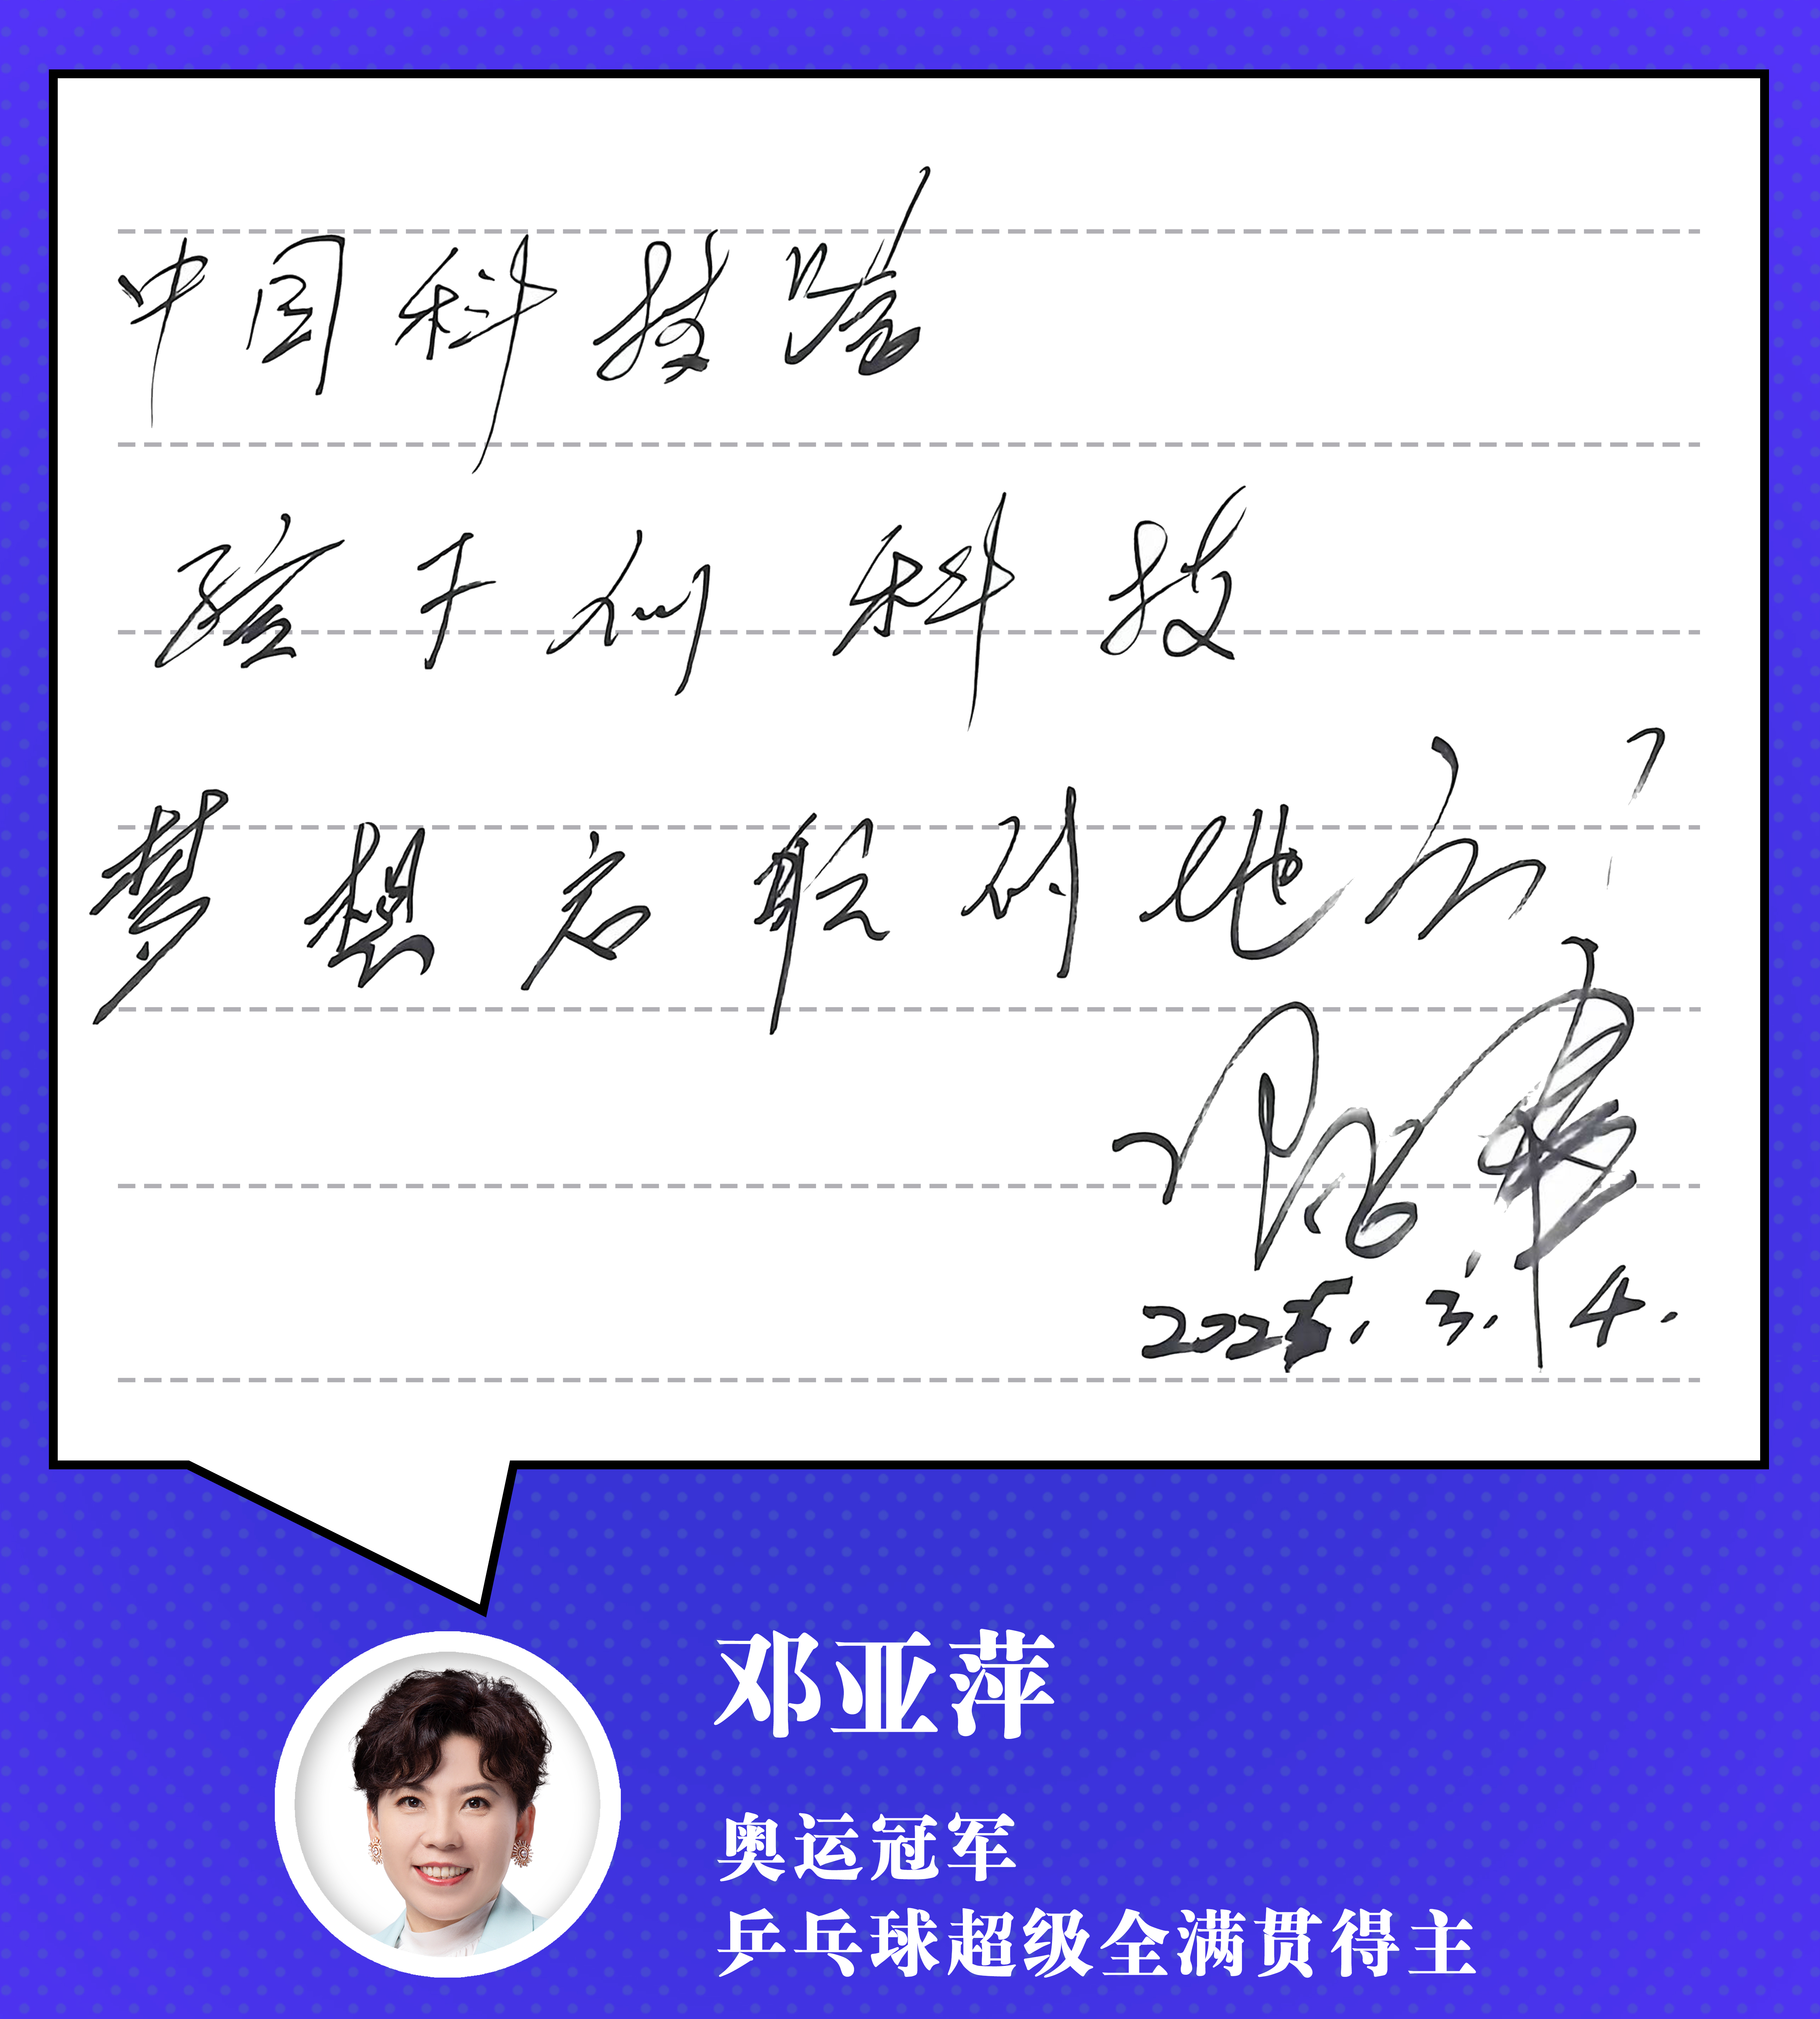 中国科技馆
孩子们科技
梦想启航的地方!
2025.3.4.
邓亚萍
奥运冠军
乒乓球超级全满贯得主